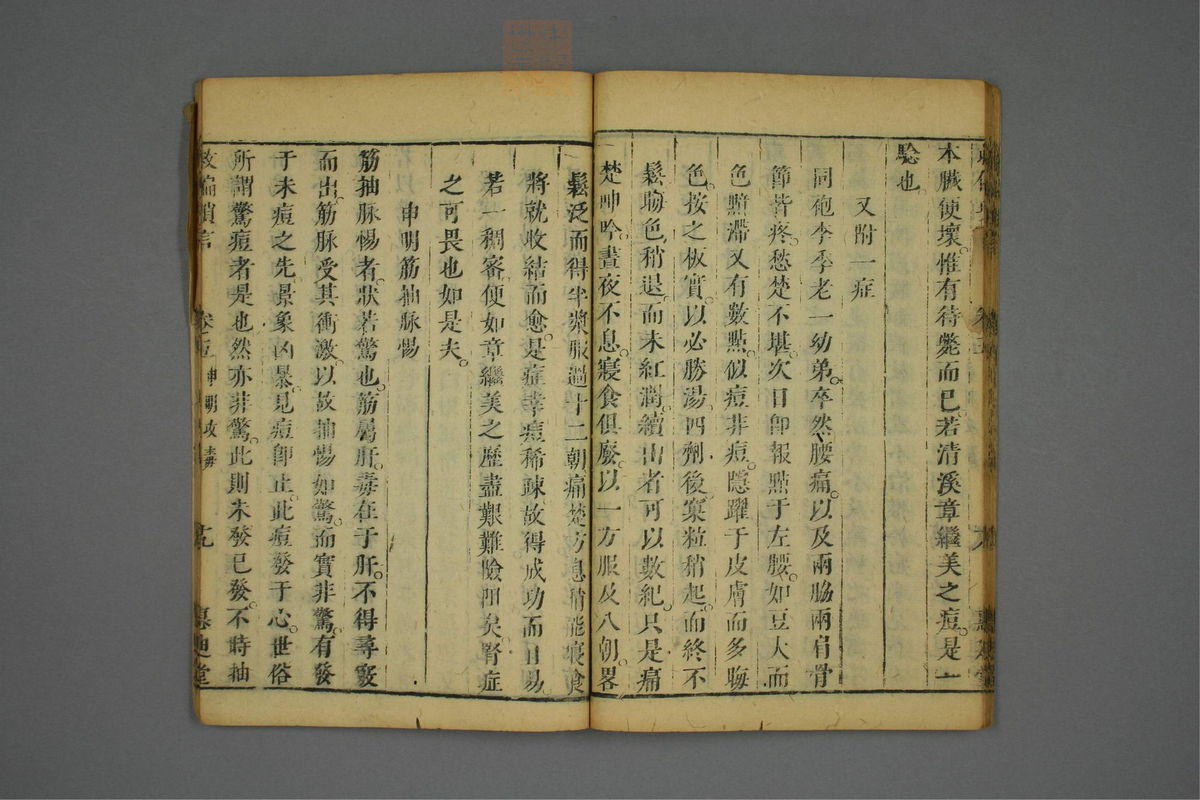 本臟便壞惟有待斃而已若清溪章繼美之痘是一
驗也
又附一症
同砲李季老一幼弟卒然腰痛以及兩脇兩肩骨
節皆疼愁楚不堪次日卽報點于左腰如豆大而
色黯滯又有數點似痘非痘隱躍于皮膚而多晦
色按之板實以必勝湯四劑後窠粒稍起而終不
鬆䏚色稍退而未紅潤續出者可以數紀只是痛
楚呻吟晝夜不息寢食俱廢以一方服及八朝畧
鬆泛而得半漿服過十二朝痛楚方息稍能寢食
將就收結而愈是症幸痘稀疎故得成功而日易
若一稠密便如章繼美之歷盡艱難險阻矣腎症
之可畏也如是夫
申明筋抽脉惕
筋抽脉惕者狀若驚也筋屬肝毒在于肝不得尋竅
而出筋脉受其衝激以故抽惕如驚而實非驚有發
于未痘之先景象凶暴見痘卽止此痘發于心世俗
所謂驚痘者是也然亦非驚此則未發已發不時抽
救偏瑣言 卷五 申明攻毒 十九 惠迪堂